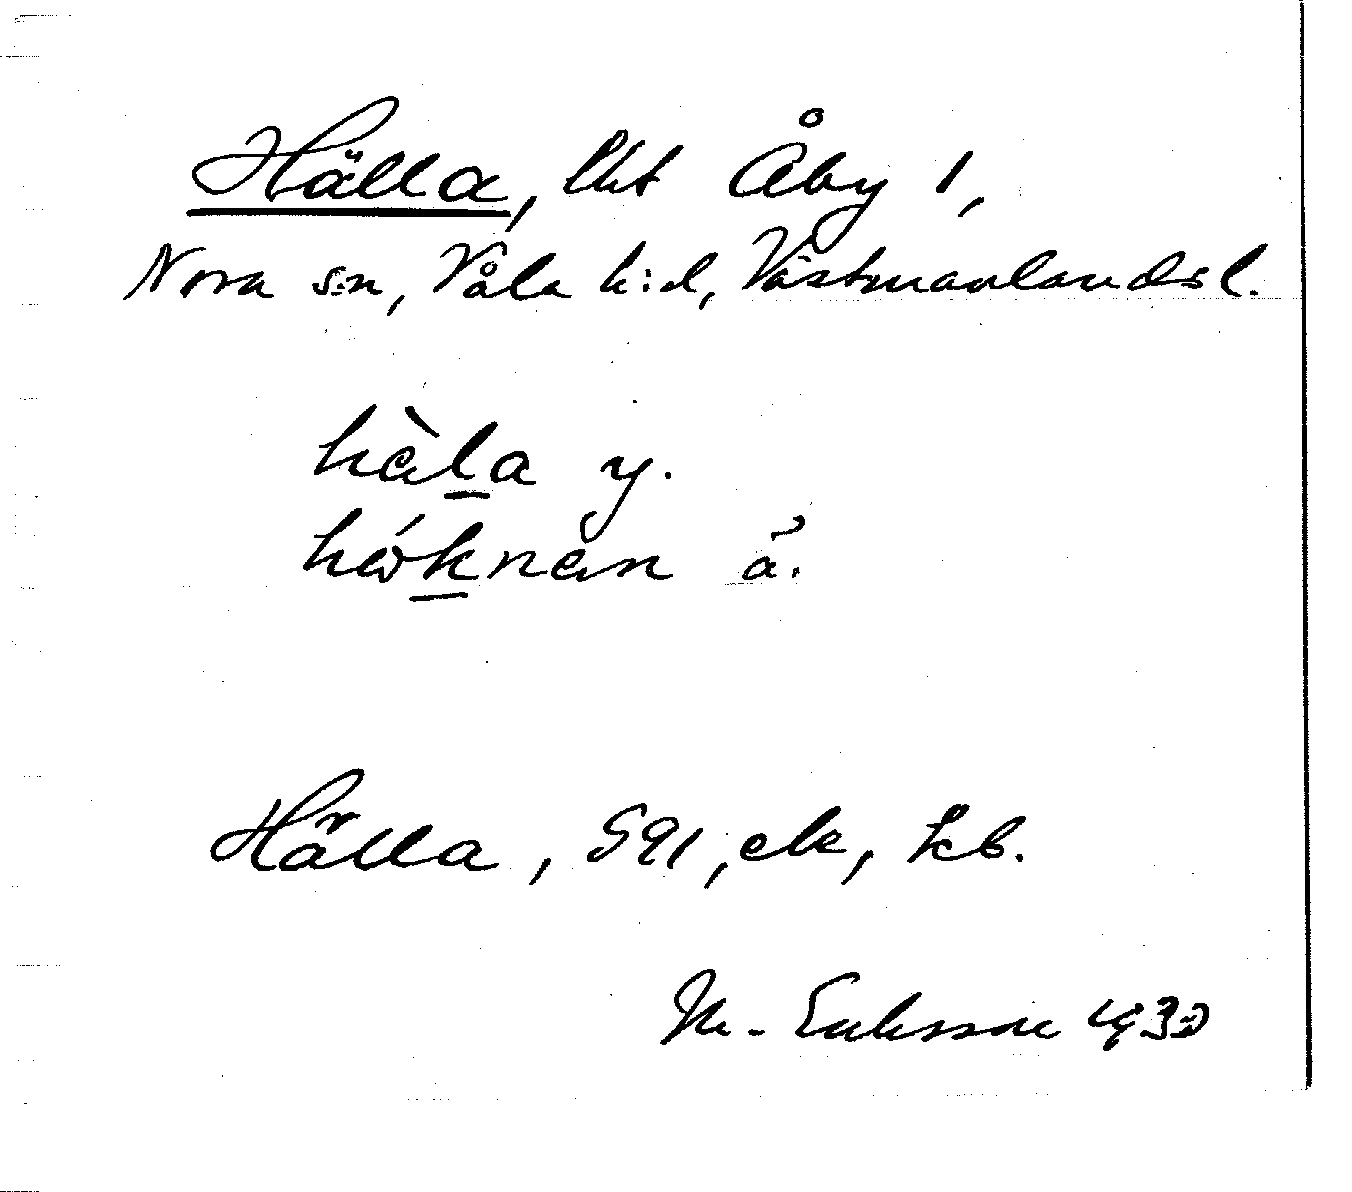 Hälla, lht Åby 1,
Nora s:n, Våla h:d, Västmanlands l.
hàla y.
hǿknan å.
Hälla, S91, ek, kb.
M. Eriksson 1930